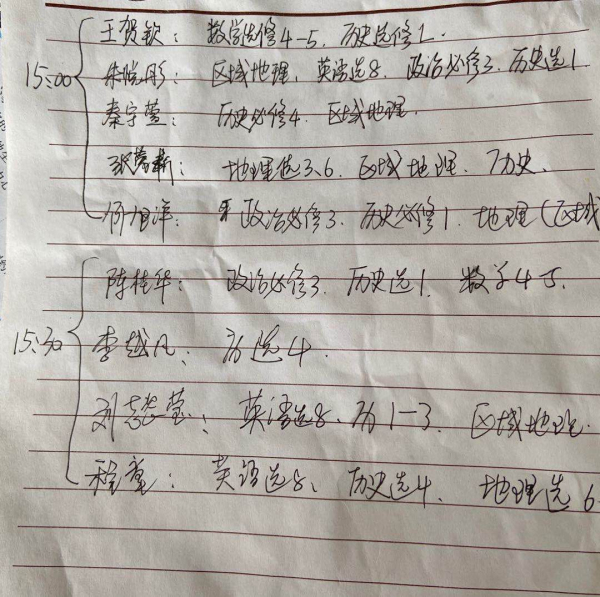 王贺钦：数学选修4-5、历史选修1.
15:00 朱悦彤：区域地理、英语选8、政治必修3、历史选1
秦宇萱：历史必修4、区域地理.
张 ：地理选3、6、区域地理、历史、
旭洋：政治必修3、历史必修1、地理(区域
陈桂华：政治必修3、历史选1、数学4-5.
15:30 李越凡：历选4.
刘 莹：英语选8、历1-3、区域地理.
程 ：英语选8、历史选4、地理选6